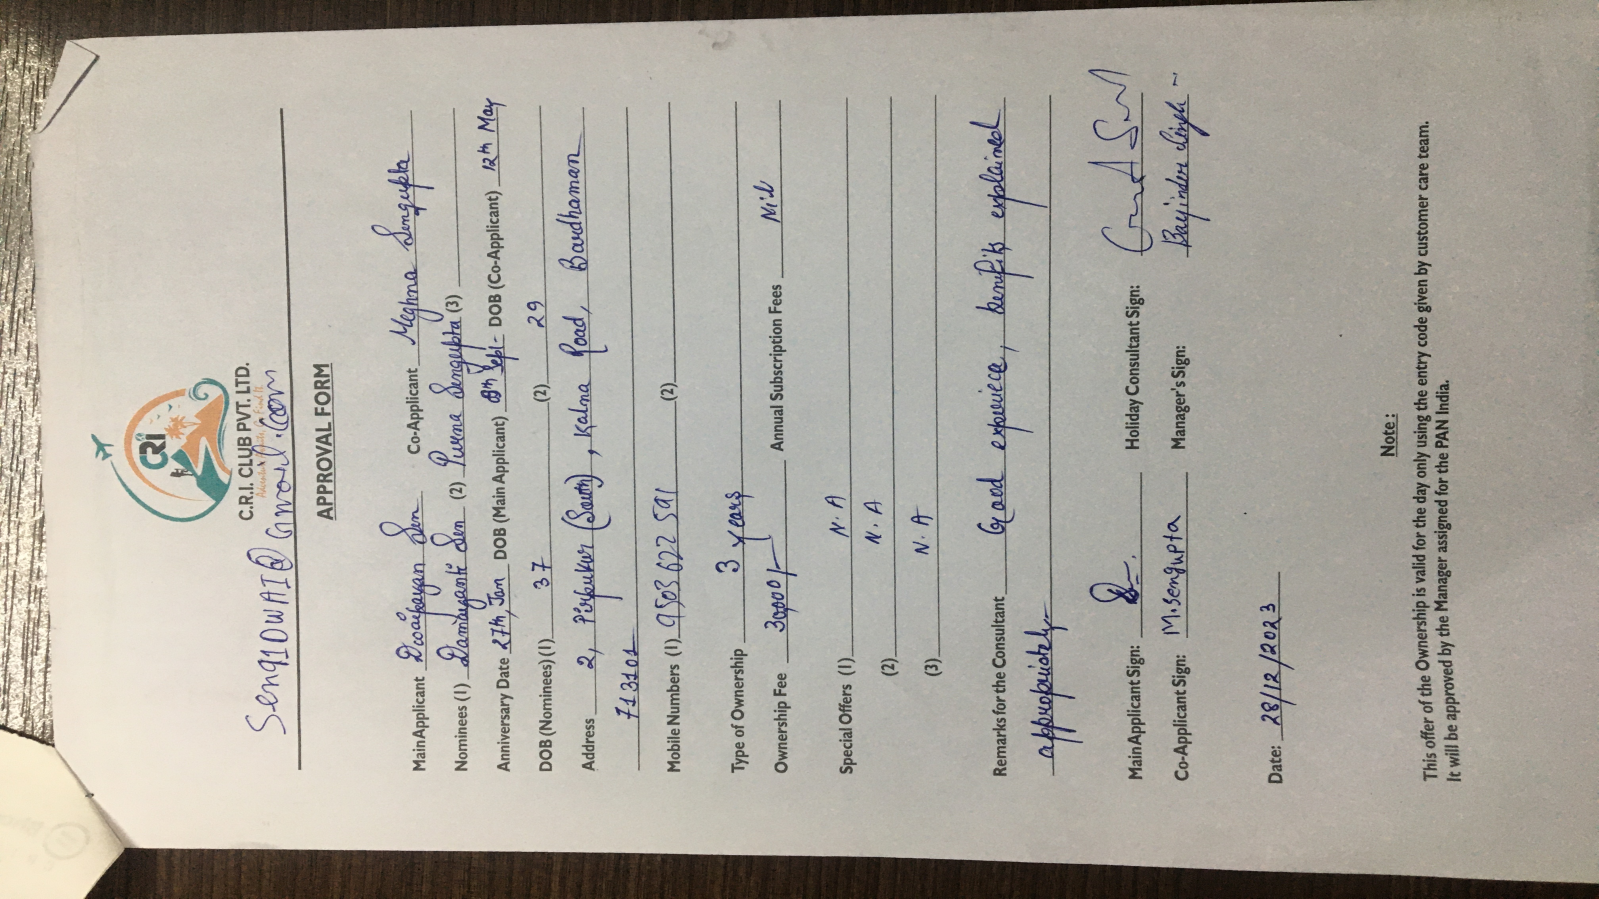 CRI
C.R.I. CLUB PVT. LTD.
Sen91DWAI@Gmail.com
APPROVAL FORM
Main Applicant Dwaipayan Sen Co-Applicant Meghna Sengupta
Nominees (1) Damayanti Sen (2) Purna Sengupta (3)
Anniversary Date 27th, Jan DOB (Main Applicant) 8th Sept- DOB (Co-Applicant) 12th May
DOB (Nominees) (1) 37 (2) 29
Address 2, Pirpukur (South), Kalna Road, Bardhaman
713101
Mobile Numbers (1) 9503622591 (2)
Type of Ownership 3 years
Ownership Fee 30,000/- Annual Subscription Fees Nil
Special Offers (1) N.A
(2) N.A
(3) N.A
Remarks for the Consultant Good experiece, benifits explained
appropriately
Main Applicant Sign: Holiday Consultant Sign:
Co-Applicant Sign: M.Sengupta Manager's Sign: Singh
Date: 28/12/2023
Note :
This offer of the Ownership is valid for the day only using the entry code given by customer care team.
It will be approved by the Manager assigned for the PAN India.